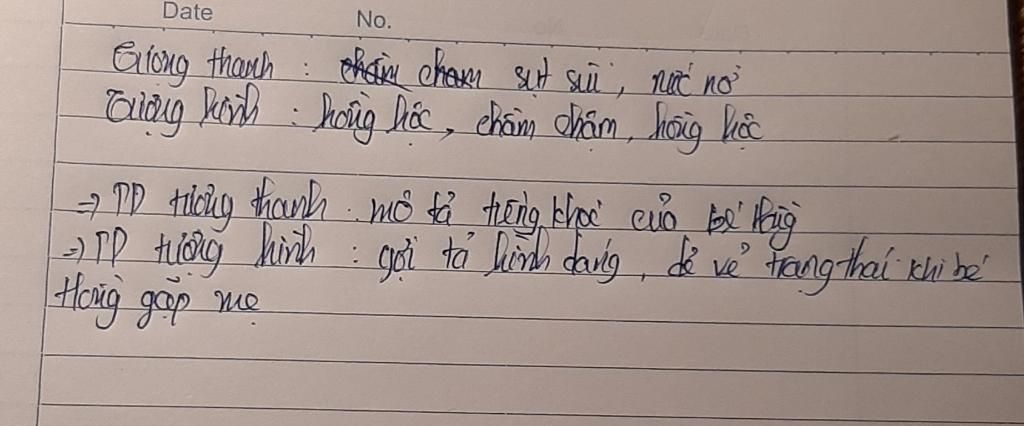 Date No.
Tượng thanh : chầm cham sụt sùi, nức nở
Tượng hình : hồng hộc, chầm chậm, hồng hộc
=> TD tượng thanh . mô tả tiếng khóc của bé Hồng
=> TD tượng hình : gợi tả hình dáng, dẻ vẻ trạng thái khi bé
Hồng gặp mẹ